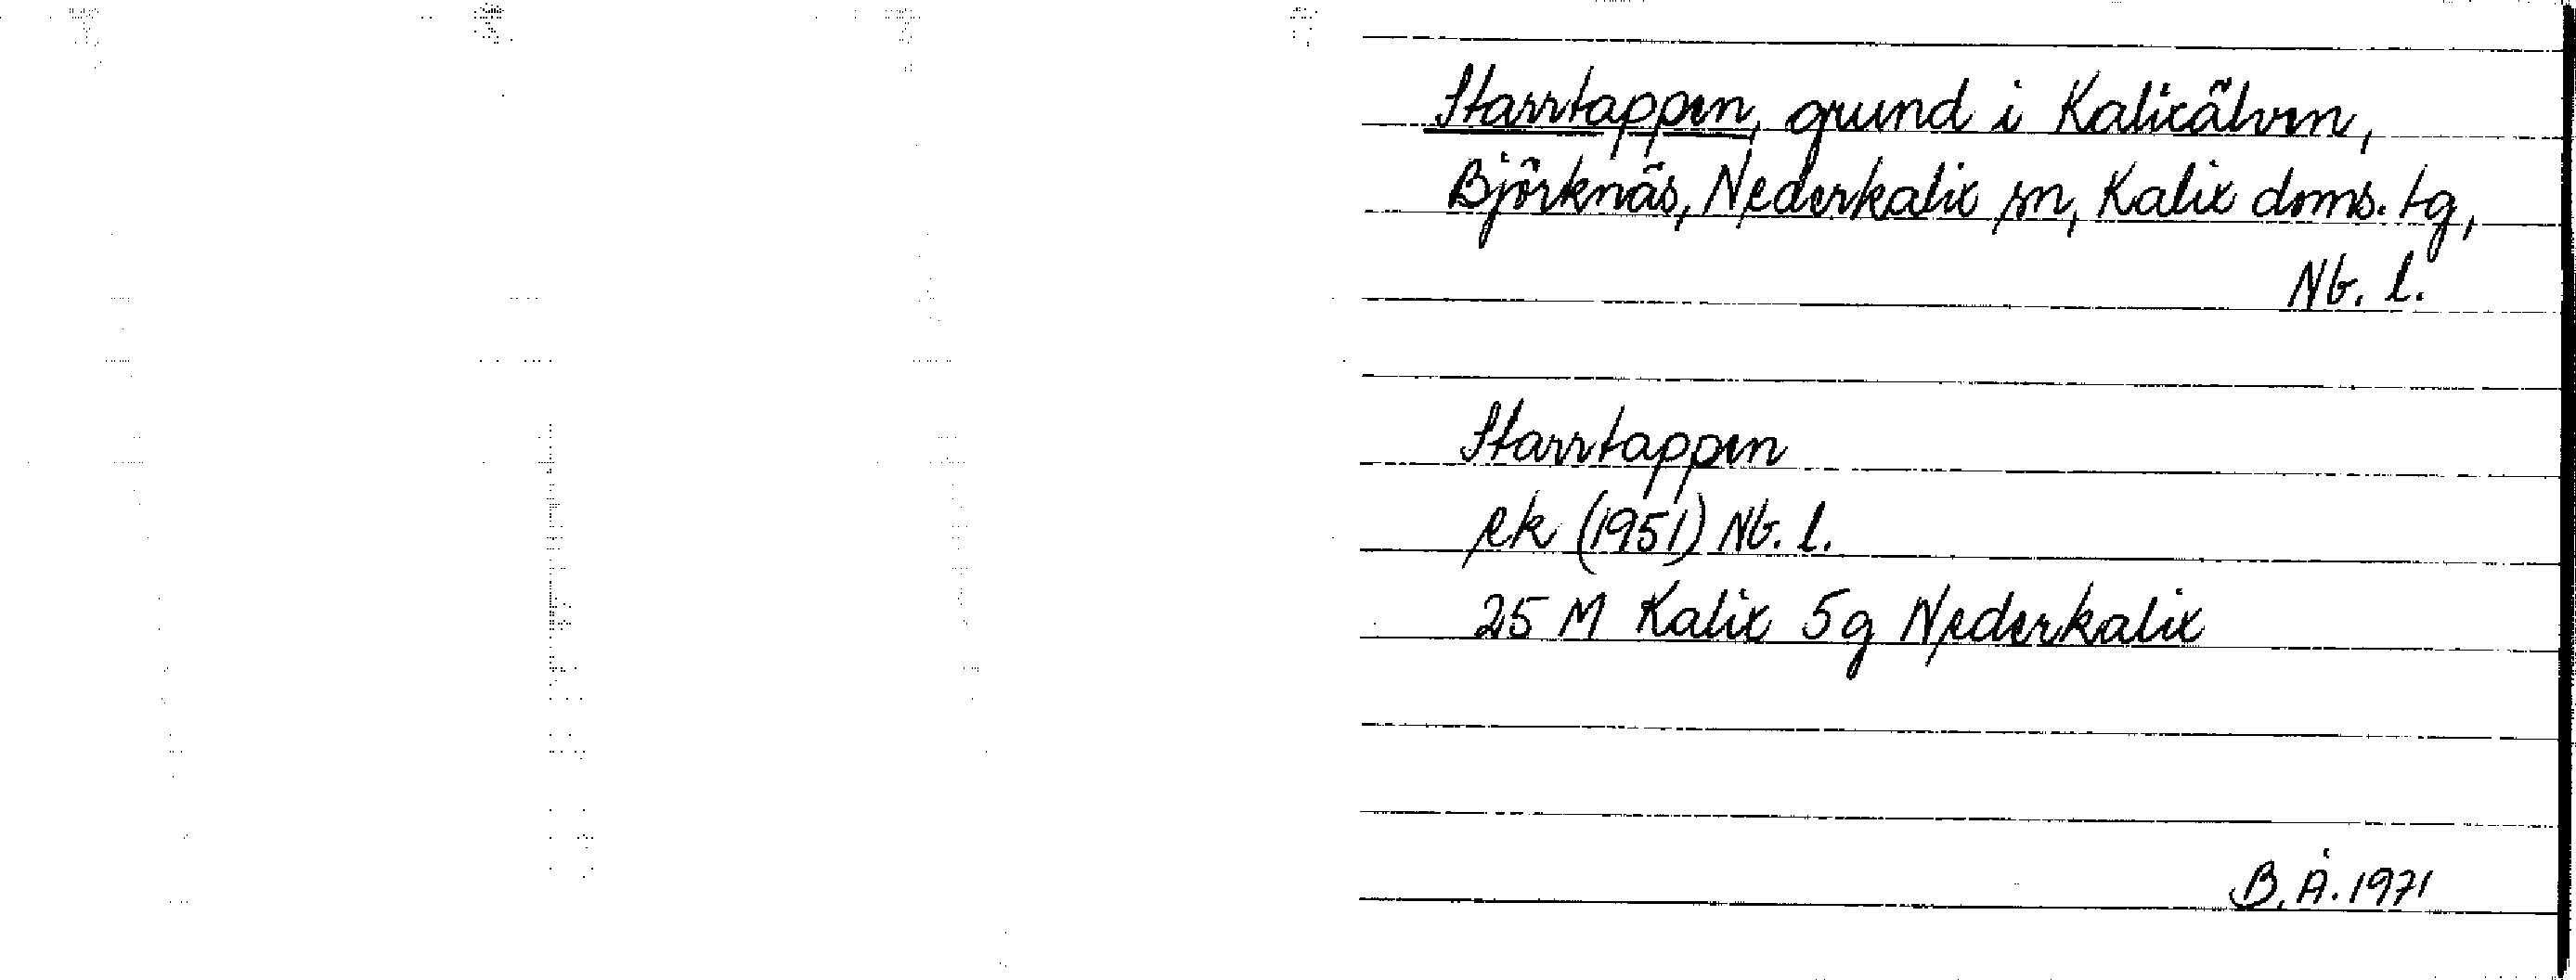 Starrtappen, grund i Kalixälven,
Björknäs, Nederkalix sn, Kalix doms. tg,
Nb. l.
Starrtappen
ek (1951) Nb. l.
25 M Kalix 5g Nederkalix
B. Å. 1971